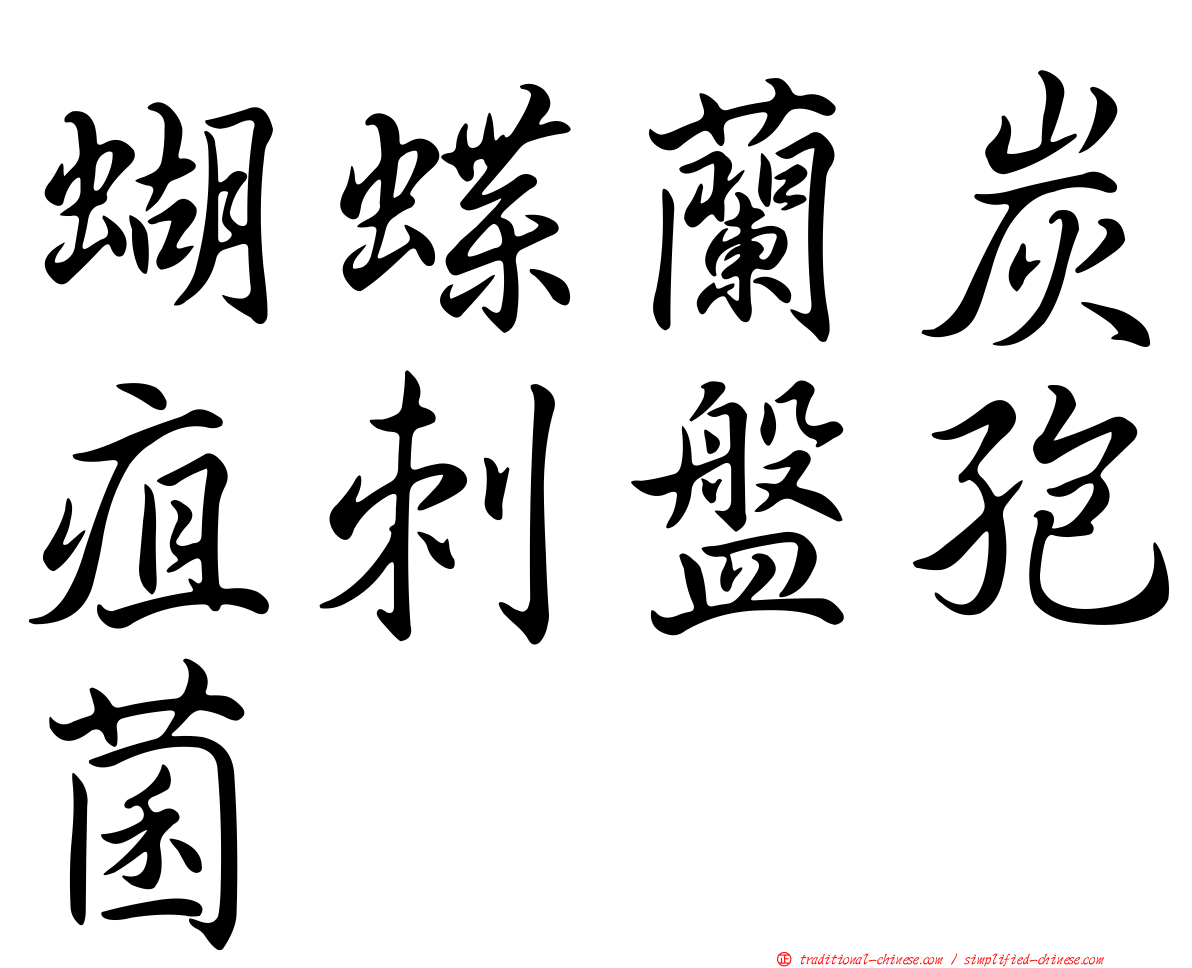 蝴蝶蘭炭
疽刺盤孢
菌
㊣ traditional-chinese.com / simplified-chinese.com